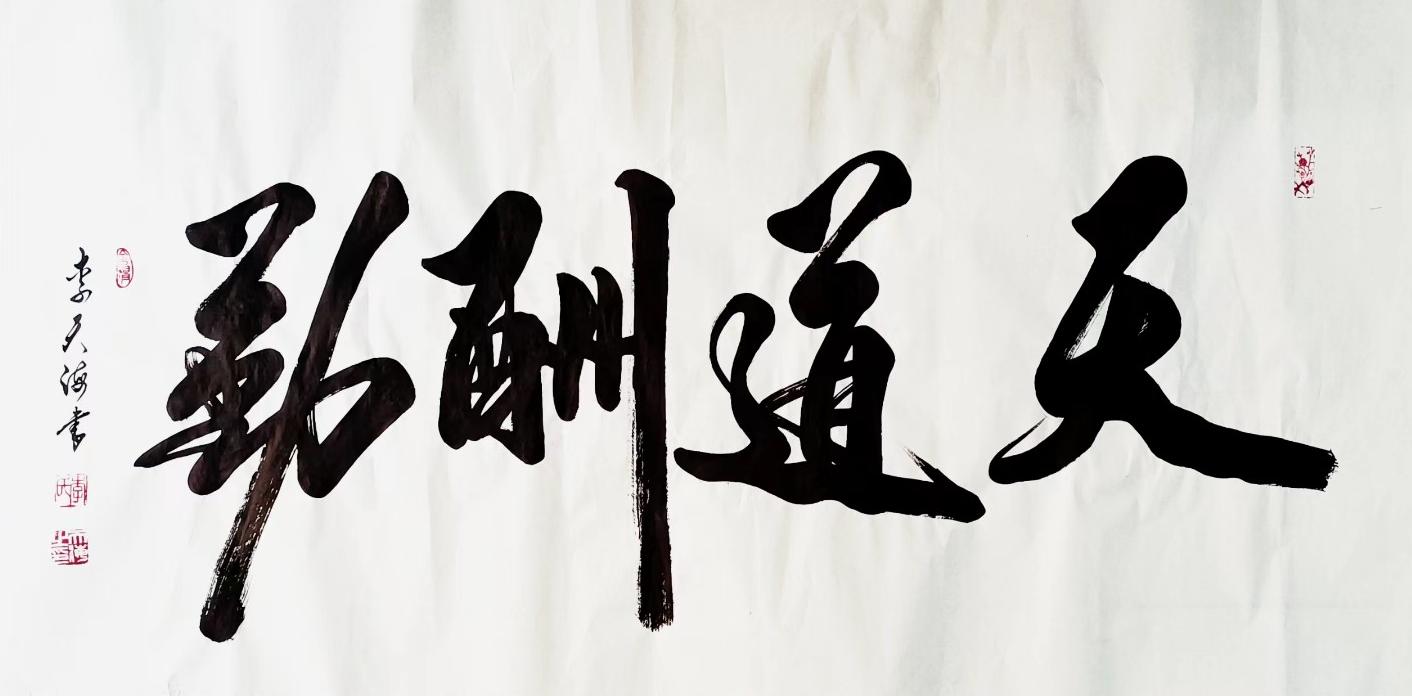 天道酬勤
李天海書